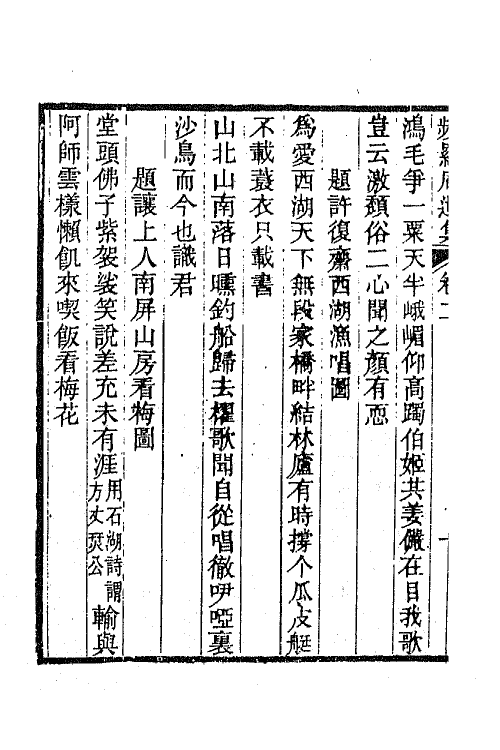 頻羅庵遺集 卷二
鴻毛爭一粟天半峨嵋仰高躅伯姬共姜儼在目我歌
豈云激頽俗二心聞之顏有恧
題許復齋西湖漁唱圖
爲愛西湖天下無段家橋畔結林廬有時撐个瓜皮艇
不載蓑衣只載書
山北山南落日曛釣船歸去櫂歌聞自從唱徹咿啞裏
沙鳥而今也識君
題讓上人南屏山房看梅圖
堂頭佛子紫袈裟笑說差充未有涯用石湖詩謂方丈琰公輸與
阿師雲樣懶飢來喫飯看梅花